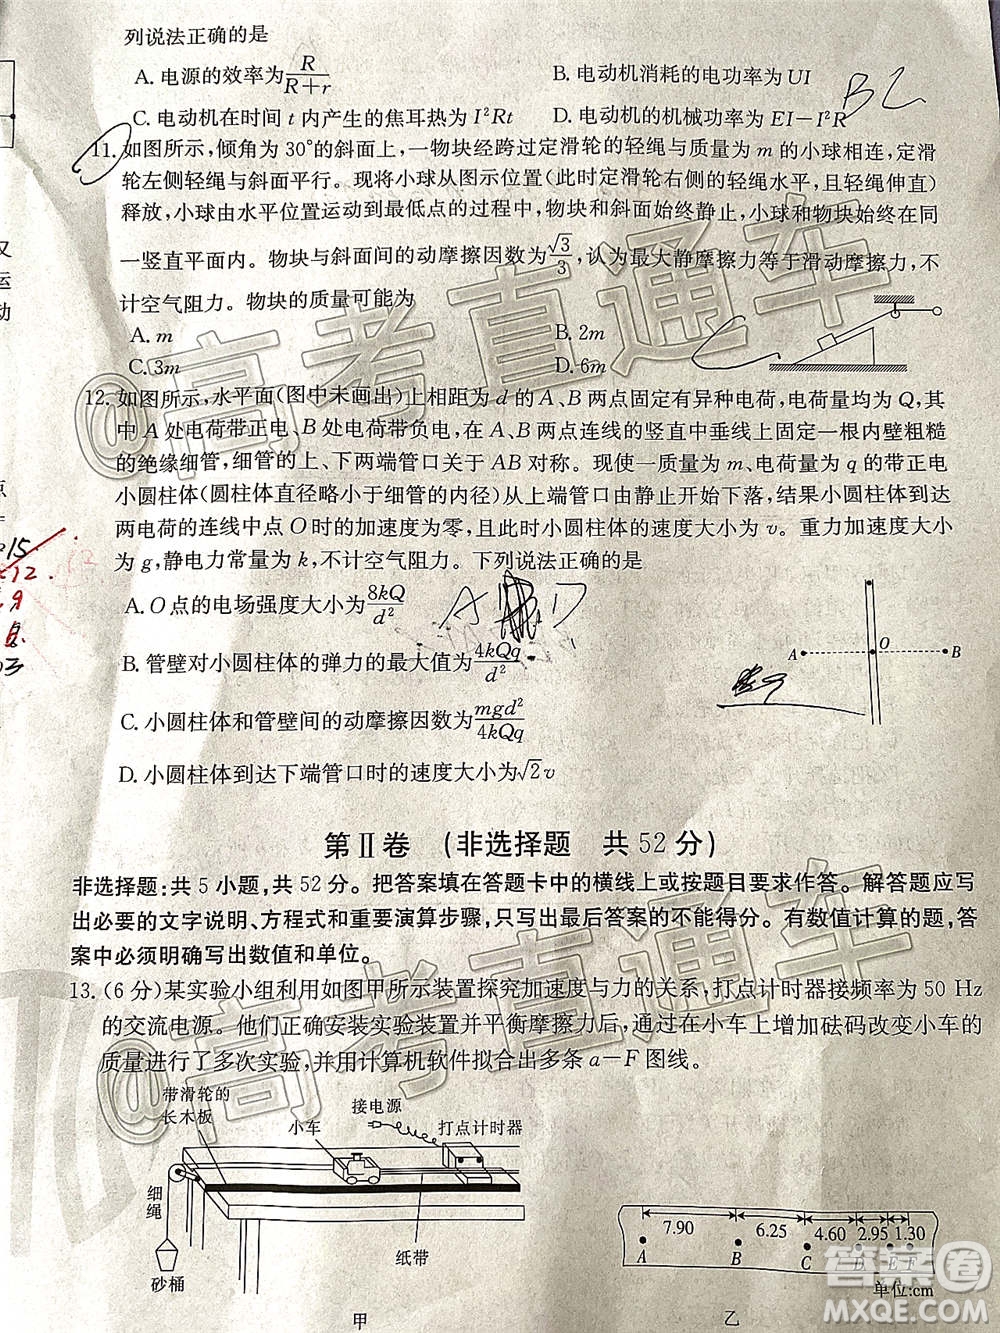 列说法正确的是
A. 电源的效率为R/(R+r)
B. 电动机消耗的电功率为UI
C. 电动机在时间 t 内产生的焦耳热为 I²Rt
D. 电动机的机械功率为 EI-I²R
11. 如图所示,倾角为30°的斜面上,一物块经跨过定滑轮的轻绳与质量为 m 的小球相连,定滑
轮左侧轻绳与斜面平行。现将小球从图示位置(此时定滑轮右侧的轻绳水平,且轻绳伸直)
释放,小球由水平位置运动到最低点的过程中,物块和斜面始终静止,小球和物块始终在同
一竖直平面内。物块与斜面间的动摩擦因数为√3/3,认为最大静摩擦力等于滑动摩擦力,不
计空气阻力。物块的质量可能为
A. m
B. 2m
C. 3m
D. 6m
12. 如图所示,水平面(图中未画出)上相距为 d 的 A、B 两点固定有异种电荷,电荷量均为 Q,其
中 A 处电荷带正电、B 处电荷带负电,在 A、B 两点连线的竖直中垂线上固定一根内壁粗糙
的绝缘细管,细管的上、下两端管口关于 AB 对称。现使一质量为 m、电荷量为 q 的带正电
小圆柱体(圆柱体直径略小于细管的内径)从上端管口由静止开始下落,结果小圆柱体到达
两电荷的连线中点 O 时的加速度为零,且此时小圆柱体的速度大小为 v。重力加速度大小
为 g,静电力常量为 k,不计空气阻力。下列说法正确的是
A. O 点的电场强度大小为8kQ/d²
B. 管壁对小圆柱体的弹力的最大值为4kQq/d²
C. 小圆柱体和管壁间的动摩擦因数为mgd²/4kQq
D. 小圆柱体到达下端管口时的速度大小为√2v
A O B
第Ⅱ卷 (非选择题 共 52 分)
非选择题:共 5 小题,共 52 分。把答案填在答题卡中的横线上或按题目要求作答。解答题应写
出必要的文字说明、方程式和重要演算步骤,只写出最后答案的不能得分。有数值计算的题,答
案中必须明确写出数值和单位。
13. (6 分)某实验小组利用如图甲所示装置探究加速度与力的关系,打点计时器接频率为 50 Hz
的交流电源。他们正确安装实验装置并平衡摩擦力后,通过在小车上增加砝码改变小车的
质量进行了多次实验,并用计算机软件拟合出多条 a-F 图线。
带滑轮的
长木板
小车
接电源
打点计时器
细绳
纸带
砂桶
甲
7.90 6.25 4.60 2.95 1.30
A B C D E F
单位:cm
乙
@高考直通车
@高考直通车
答案圈
MXQE.COM